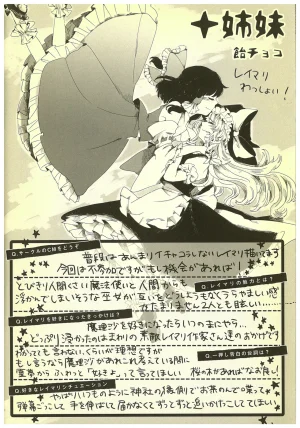 十姉妹
飴チョコ
レイマリ
わっしょい！
Q.サークルのCMをどうぞ
普段はあんまりイチャコラしないレイマリ描いてます
今回は不参加ですがもし機会があれば！
Q.レイマリの魅力とは？
とびきり人間くさい魔法使いと人間から
浮かんでしまいそうな巫女が互いをどうしようもなくうらやましい感
がたまりません2人とも眩しい…
Q.レイマリを好きになったきっかけは？
魔理沙を好きになったらいつのまにやら…
どっぷり浸かったのはまわりの素敵レイマリ作家さん達のおかげです
Q.一押し告白の台詞は？
わかってても言わないくらいが理想ですが
もし言うなら魔理沙があれこれ考えている間に
霊夢からふわっと「好きよ」って言ってほしい
桜の木があればなお良し！
Q.好きなレイマリシチュエーション
やっぱりいつものように神社の縁側でお茶のんでの喋って
弾幕ごっこして手を伸ばして届かなくてずっとずっと追いかけたりしてほしい！